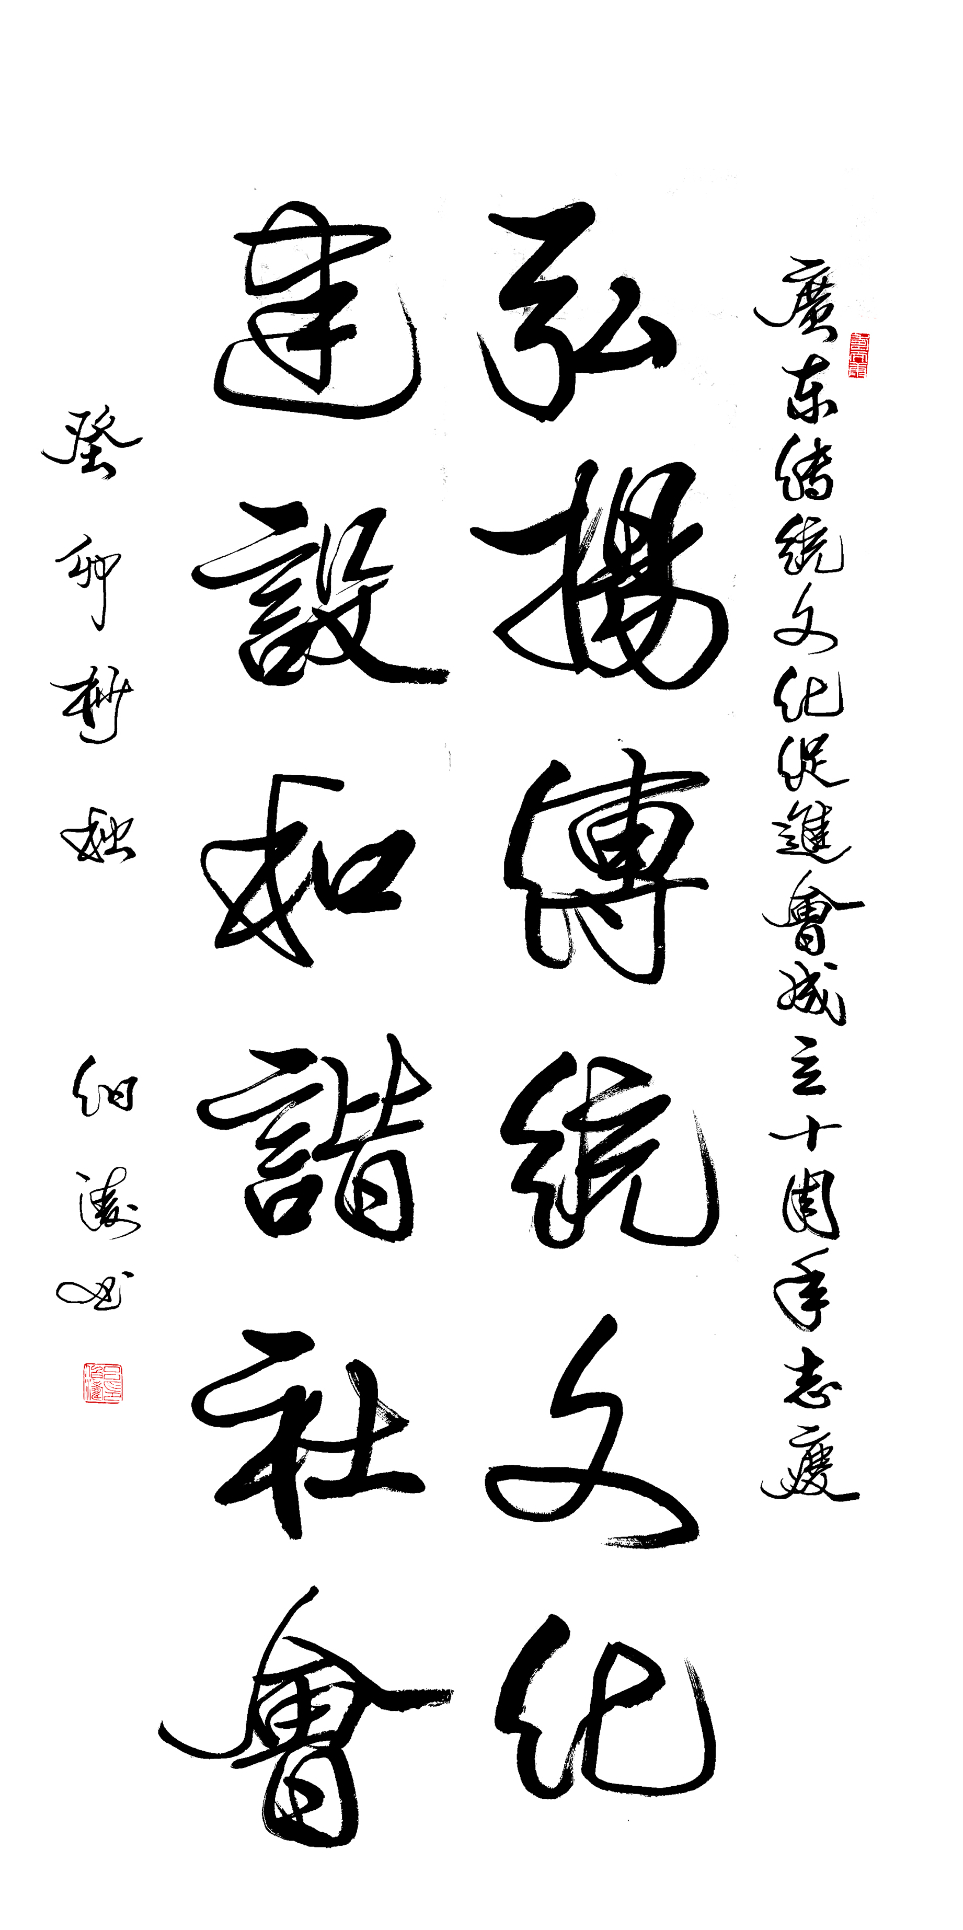 廣东傳統文化促進會成立十周年志慶
弘揚傳統文化
建設和諧社會
癸卯梦秋
伯濤书